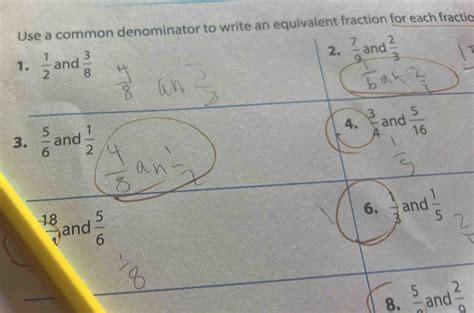 Use a common denominator to write an equivalent fraction for each fractio
1. 1/2 and 3/8
4/8 an 3/
2. 7/9 and 2/3
3. 5/6 and 1/2
4/8 an 1/2
4. 3/4 and 5/16
1/5
18/ and 5/6
1/8
6. 1/3 and 1/5
8. 5/ and 2/9